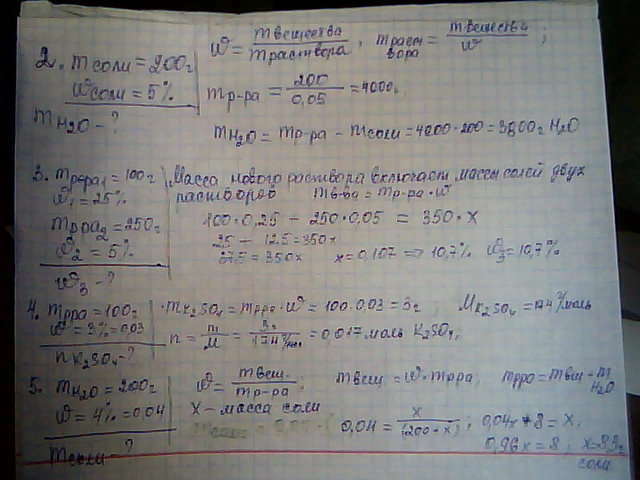 2. m соли = 200г
ω соли = 5%
m H2O - ?
ω = m вещества / m раствора, m раствора = m вещества / ω;
m р-ра = 200 / 0,05 = 4000г
m H2O = m р-ра - m соли = 4000-200 = 3800г H2O
3. m рра1 = 100г
ω1 = 25%
m рра2 = 250г
ω2 = 5%
ω3 - ?
Масса нового раствора включает массы солей двух
растворов m в-ва = m р-ра · ω
100·0,25 + 250·0,05 = 350·x
25 + 12.5 = 350x
37.5 = 350x x = 0,107 => 10,7% ω3 = 10,7%
4. m рра = 100г
ω = 3% = 0,03
n K2SO4 - ?
m K2SO4 = m рра · ω = 100·0,03 = 3г; M K2SO4 = 174г/моль
n = m / M = 3г / 174г/моль = 0,017 моль K2SO4
5. m H2O = 200г
ω = 4% = 0,04
m соли - ?
ω = m вещ. / m р-ра; m вещ = ω · m рра; m рра = m вщ + m H2O
x - масса соли
0,04 = x / (200 + x); 0,04x + 8 = x,
0,96x = 8; x = 8.3г
соли